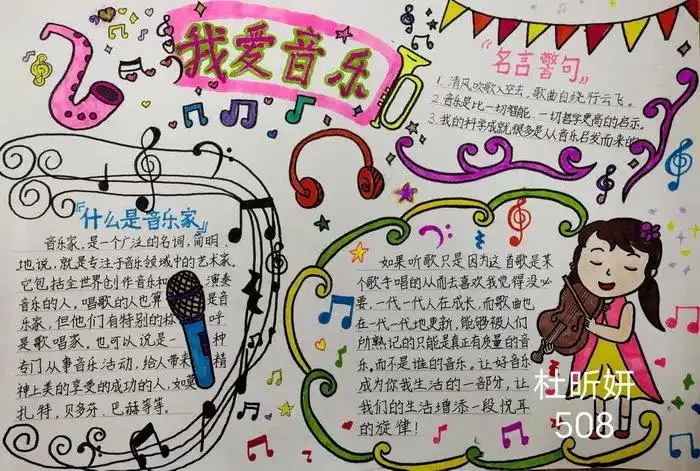 我爱音乐
“名言警句”
1. 清风吹歌入空去，歌曲自绕行云飞。
2. 音乐是比一切智能、一切哲学更高的启示。
3. 我的科学成就很多是从音乐启发而来的
“什么是音乐家”
音乐家，是一个广泛的名词，简明
地说，就是专注于音乐领域中的艺术家，
它包括全世界创作音乐和 演奏
音乐的人，唱歌的人也算 是音
乐家，但他们有特别的称 呼
是歌唱家。也可以说是一 种
专门从事音乐活动，给人带来 精
神上美的享受的成功的人，如莫
扎特，贝多芬，巴赫等等。
如果听歌只是因为这首歌是某
个歌手唱的从而去喜欢我觉得没必
要，一代一代人在成长，而歌曲也
在一代一代地更新，能够被人们
所熟记的只能是真正有质量的音
乐。而不是谁的音乐。让好音乐
成为你我生活的一部分，让
我们的生活增添一段悦耳
的旋律！
杜昕妍
508